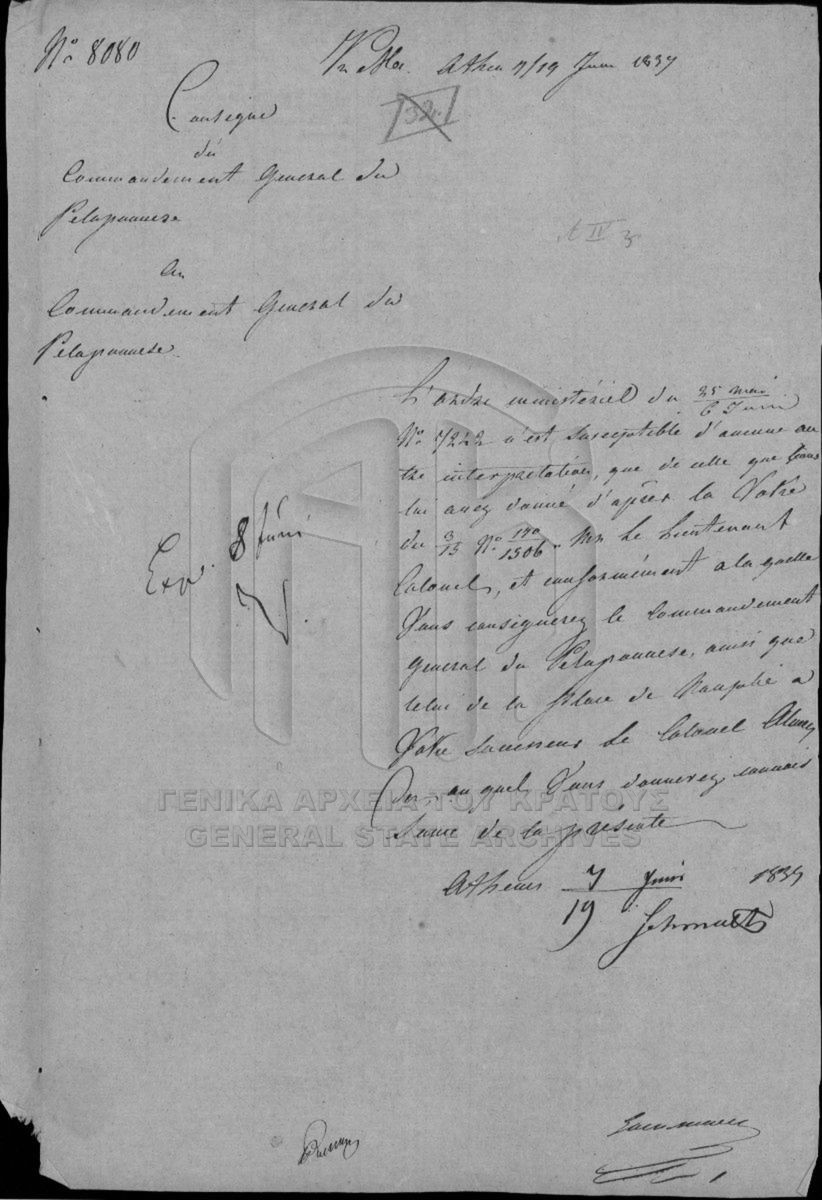 No 8080
Athen 7/19 Juni 1837
Consigne
du
Commandement General du
Peloponnese
Au
Commandement General du
Peloponnese.
L'ordre ministériel du 25 mai / 6 Juin
No 7242 n'est susceptible d'aucune au
tre interprétation, que de celle que Vous
lui avez donné d'après la Votre
du 3/15 No 170/1506. Mr le Lieutenant
Colonel, et conformément a la quelle
Vous consignerez le Commandement
General du Peloponnese, ainsi que
celui de la Place de Nauplie a
Votre Successeur le Colonel
au quel Vous donnerez connais
sance de la présente
Exp. 8 Juni
Athenes 7/19 Juni 1837
Schmaltz
ΓΕΝΙΚΑ ΑΡΧΕΙΑ ΤΟΥ ΚΡΑΤΟΥΣ
GENERAL STATE ARCHIVES